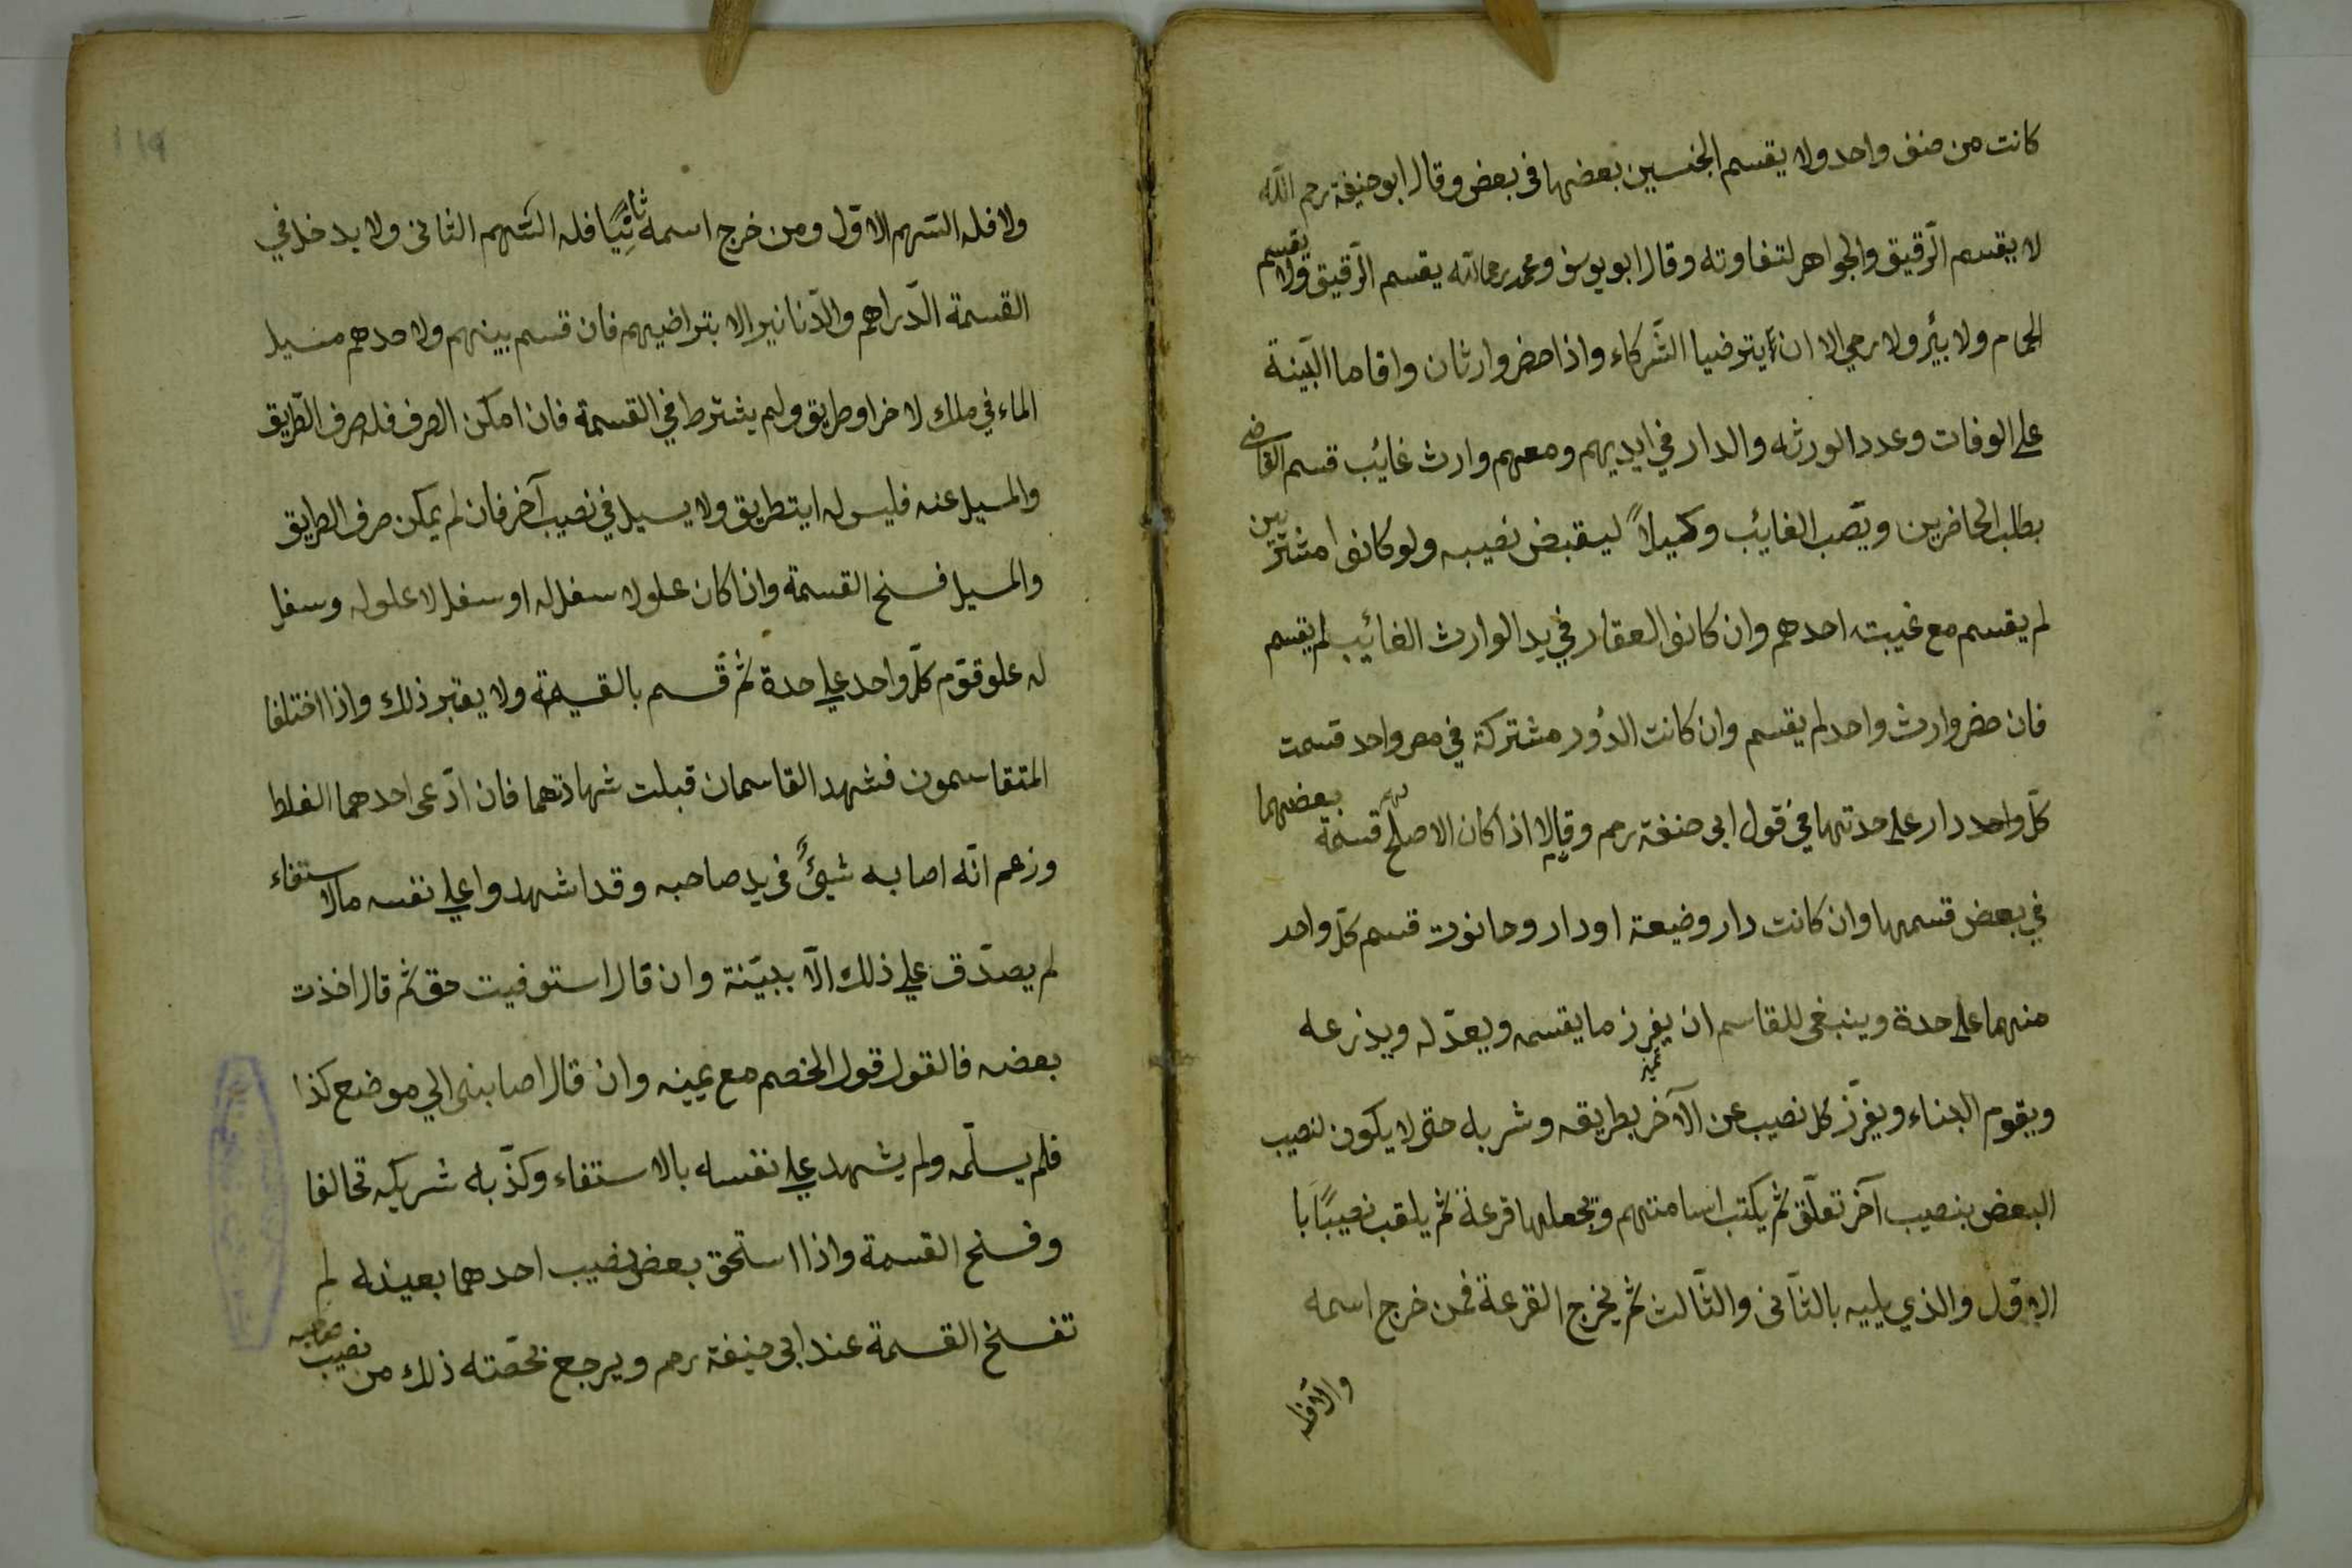 كانت من صنف واحد ولا يقسم الجنسين بعضها فى بعض وقال ابو حنيفة رحم الله
لا يقسم الرّقيق والجواهر لتفاوته وقال ابو يوسف ومحمد رحمالله يقسم الرّقيق ولا يقسم
الحمام ولا بئر ولا رحي الا ان يترضيا الشّركاء واذا حضر وارثان واقاما البّينة
على الوفات وعدد الورثه والدار في ايديهم ومعهم وارث غائب قسم القاضى
بطلب الحاضرين وينّصب الغائب وكيلاً ليقبض نصيبه ولو كانوا مشترين
لم يقسم مع غيبته احدهم وان كانوا العقار في يد الوارث الغائيب لم يقسم
فان حضر وارث واحد لم يقسم وان كانت الدُور مشتركة في مصر واحد قسمت
كلّ واحد دار على حدتها في قول ابى حنفة رحم وقالا اذا كان الاصلح لهم قسمة بعضهما
في بعض قسمها وان كانت دار وضيعة او دار وحانوت قسم كلّ واحد
منهما على حدة وينبغى للقاسم ان يفرز ما يقسمه ويعدّله ويذرعه
ويقوم البناء ويفرّز كل نصيب عن الآخر بطريقه وشربه حتى لا يكون لنصيب
البعض بنصيب آخر تعلّق ثم يكتب اسامتهم وتجعلها قرعة ثم يلقب نصيبًا با
الاوّل والذي يليه بالثّانى والثّالث ثم يخرج القرعة فمن خرج اسمه
والافله
119
ولا فله السّهم الاوّل ومن خرج اسمه ثانيًا فله السّهم الثانى ولا يدخل في
القسمة الدّراهم والدّنانير الا بتراضيهم فان قسم بينهم ولاحدهم مسيل
الماء في ملك لاخر او طريق ولم يشترط في القسمة فان امكن الصرف فله صرف الطّريق
والمسيل عنه فليس له ايتطريق ولا يسيل في نصيب آخر فان لم يمكن صرف الطريق
والمسيل فسخ القسمة واذا كان علو لا سفل له او سفل لا علو له وسفل
له علو قوّم كلّ واحد علي حدة ثم قّسم بالقيمة ولا يعتبر ذلك واذا اختلفا
المتقاسمون فشهد القاسمان قبلت شهادتهما فان ادّعى احدهما الغلط
وزعم انّه اصابه شيئًُ فى يد صاحبه وقد اشهدوا علي نفسه مالاستفاء
لم يصدّق علي ذلك الّا ببيّنة وان قال استوفيت حق ثم قال اخذت
بعضه فالقول قول الخصم مع يمينه وان قال اصابنى الي موضع كذا
فلم يسلّمه ولم يشهد علي نفسه بالاستفاء وكذّبه شريكه تحالفا
وفسخ القسمة واذا استحق بعض نصيب احدهما بعينه لم
تفسخ القسمة عند ابى حنيفة رحم ويرجع بحصّته ذلك من نصيب صاحبه